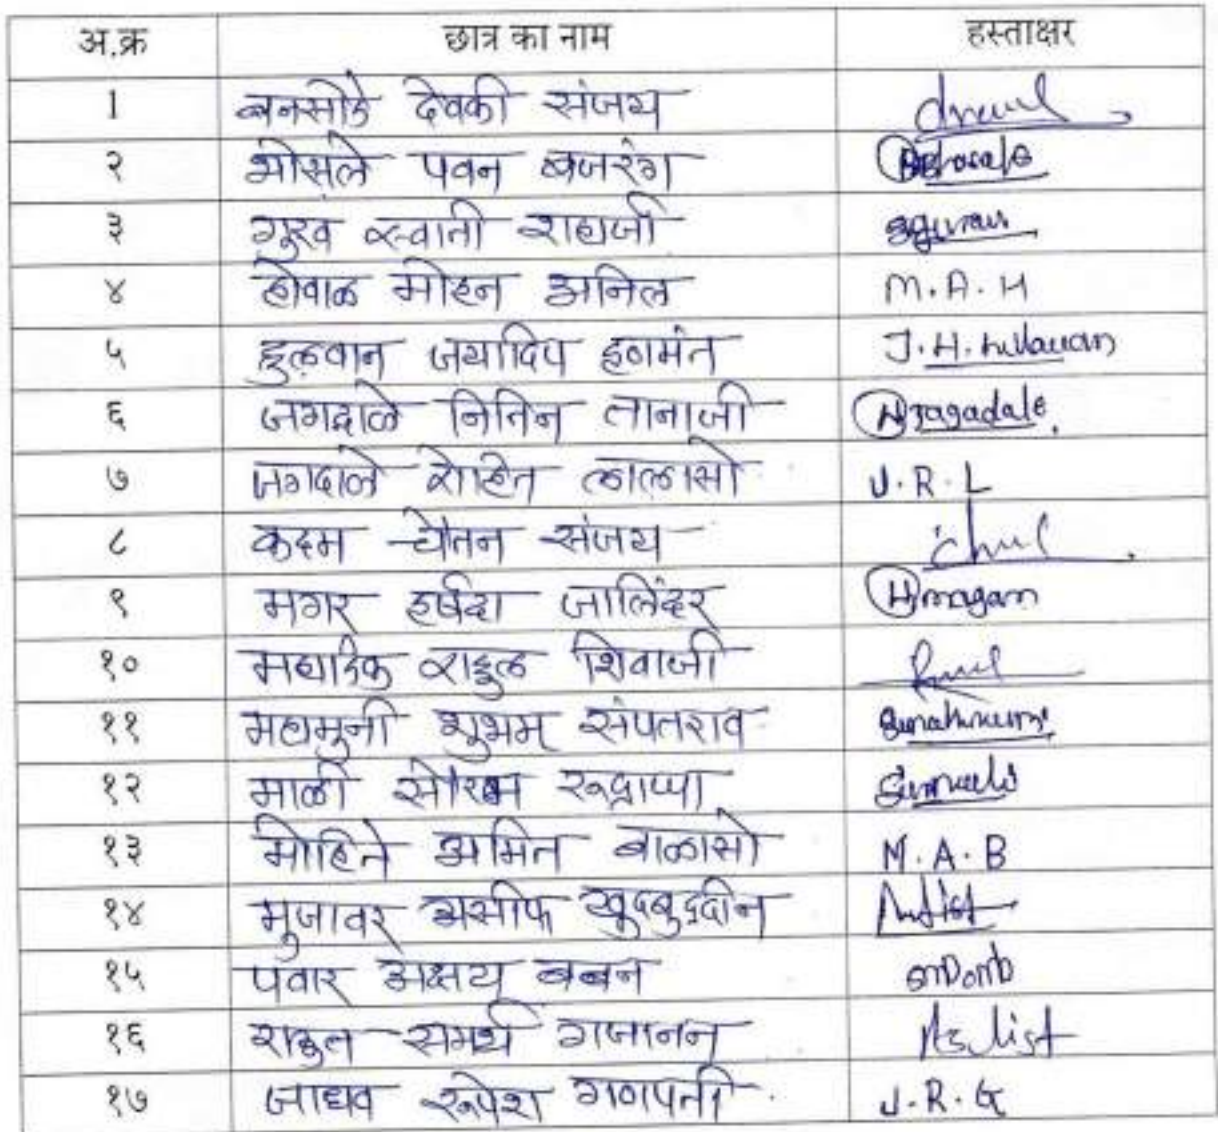 अ.क्र छात्र का नाम हस्ताक्षर
1 बनसोडे देवकी संजय
२ भोसले पवन बजरंग Bhosale
३ गुरव स्वाती शहाजी
४ होवाळ मोहन अनिल M.A.H
५ हुलवान जयदिप हणमंत J.H.hulawan
६ जगदाळे नितिन तानाजी N Jagadale
७ जगदाळे रोहित लालासो J.R.L
८ कदम चेतन संजय
९ मगर हर्षदा जालिंदर H magar
१० महाडिक राहुल शिवाजी
११ महामुनी शुभम संपतराव
१२ माळी सौरभ रुद्राप्पा
१३ मोहिते अमित बाळासो M.A.B
१४ मुजावर असीफ खुदबुद्दीन
१५ पवार अक्षय बबन
१६ राहुल समर्थ गजानन
१७ जाधव रुपेश गणपती J.R.G